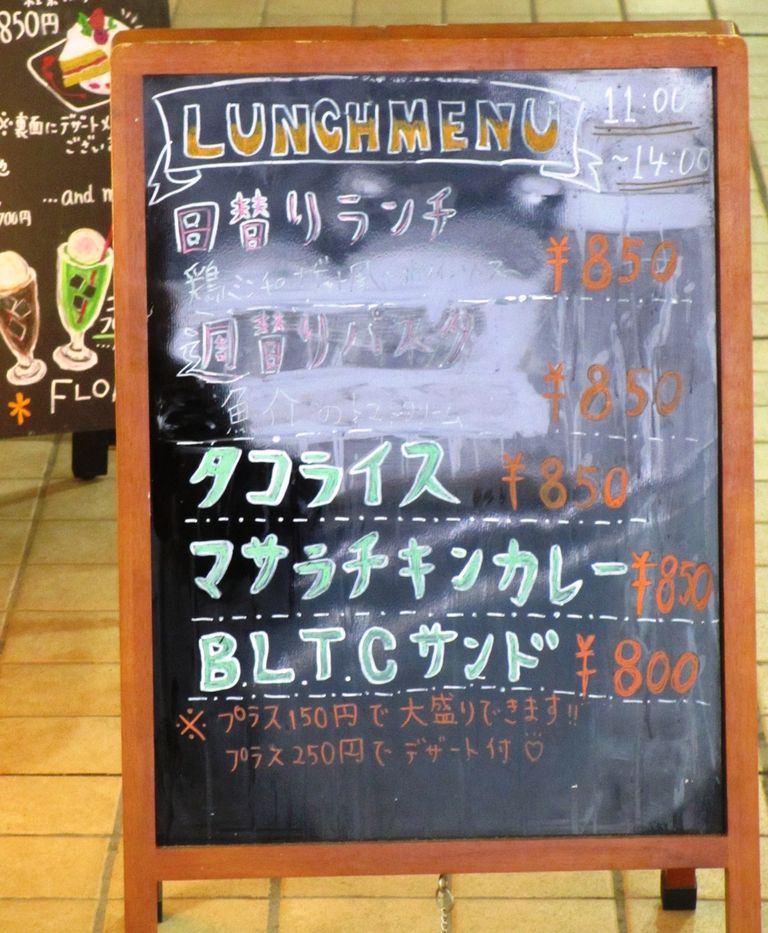 850円
※裏面にデザートメ
ござい
...and m
700円
FLO
LUNCH MENU
11:00
~14:00
日替りランチ
¥850
鶏
週替りパスタ
¥850
魚介の
タコライス ¥850
マサラチキンカレー ¥850
B.L.T.Cサンド ¥800
※ プラス150円で大盛りできます!!
プラス250円でデザート付♡